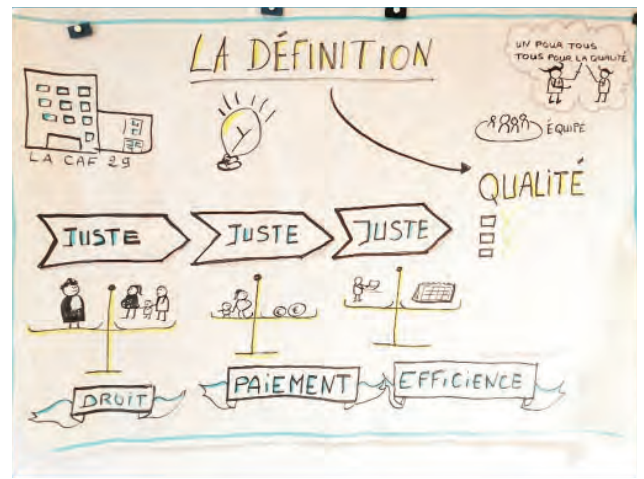 LA DÉFINITION
UN POUR TOUS
TOUS POUR LA QUALITÉ
ÉQUIPE
LA CAF 29
QUALITÉ
JUSTE
JUSTE
JUSTE
DROIT
PAIEMENT
EFFICIENCE